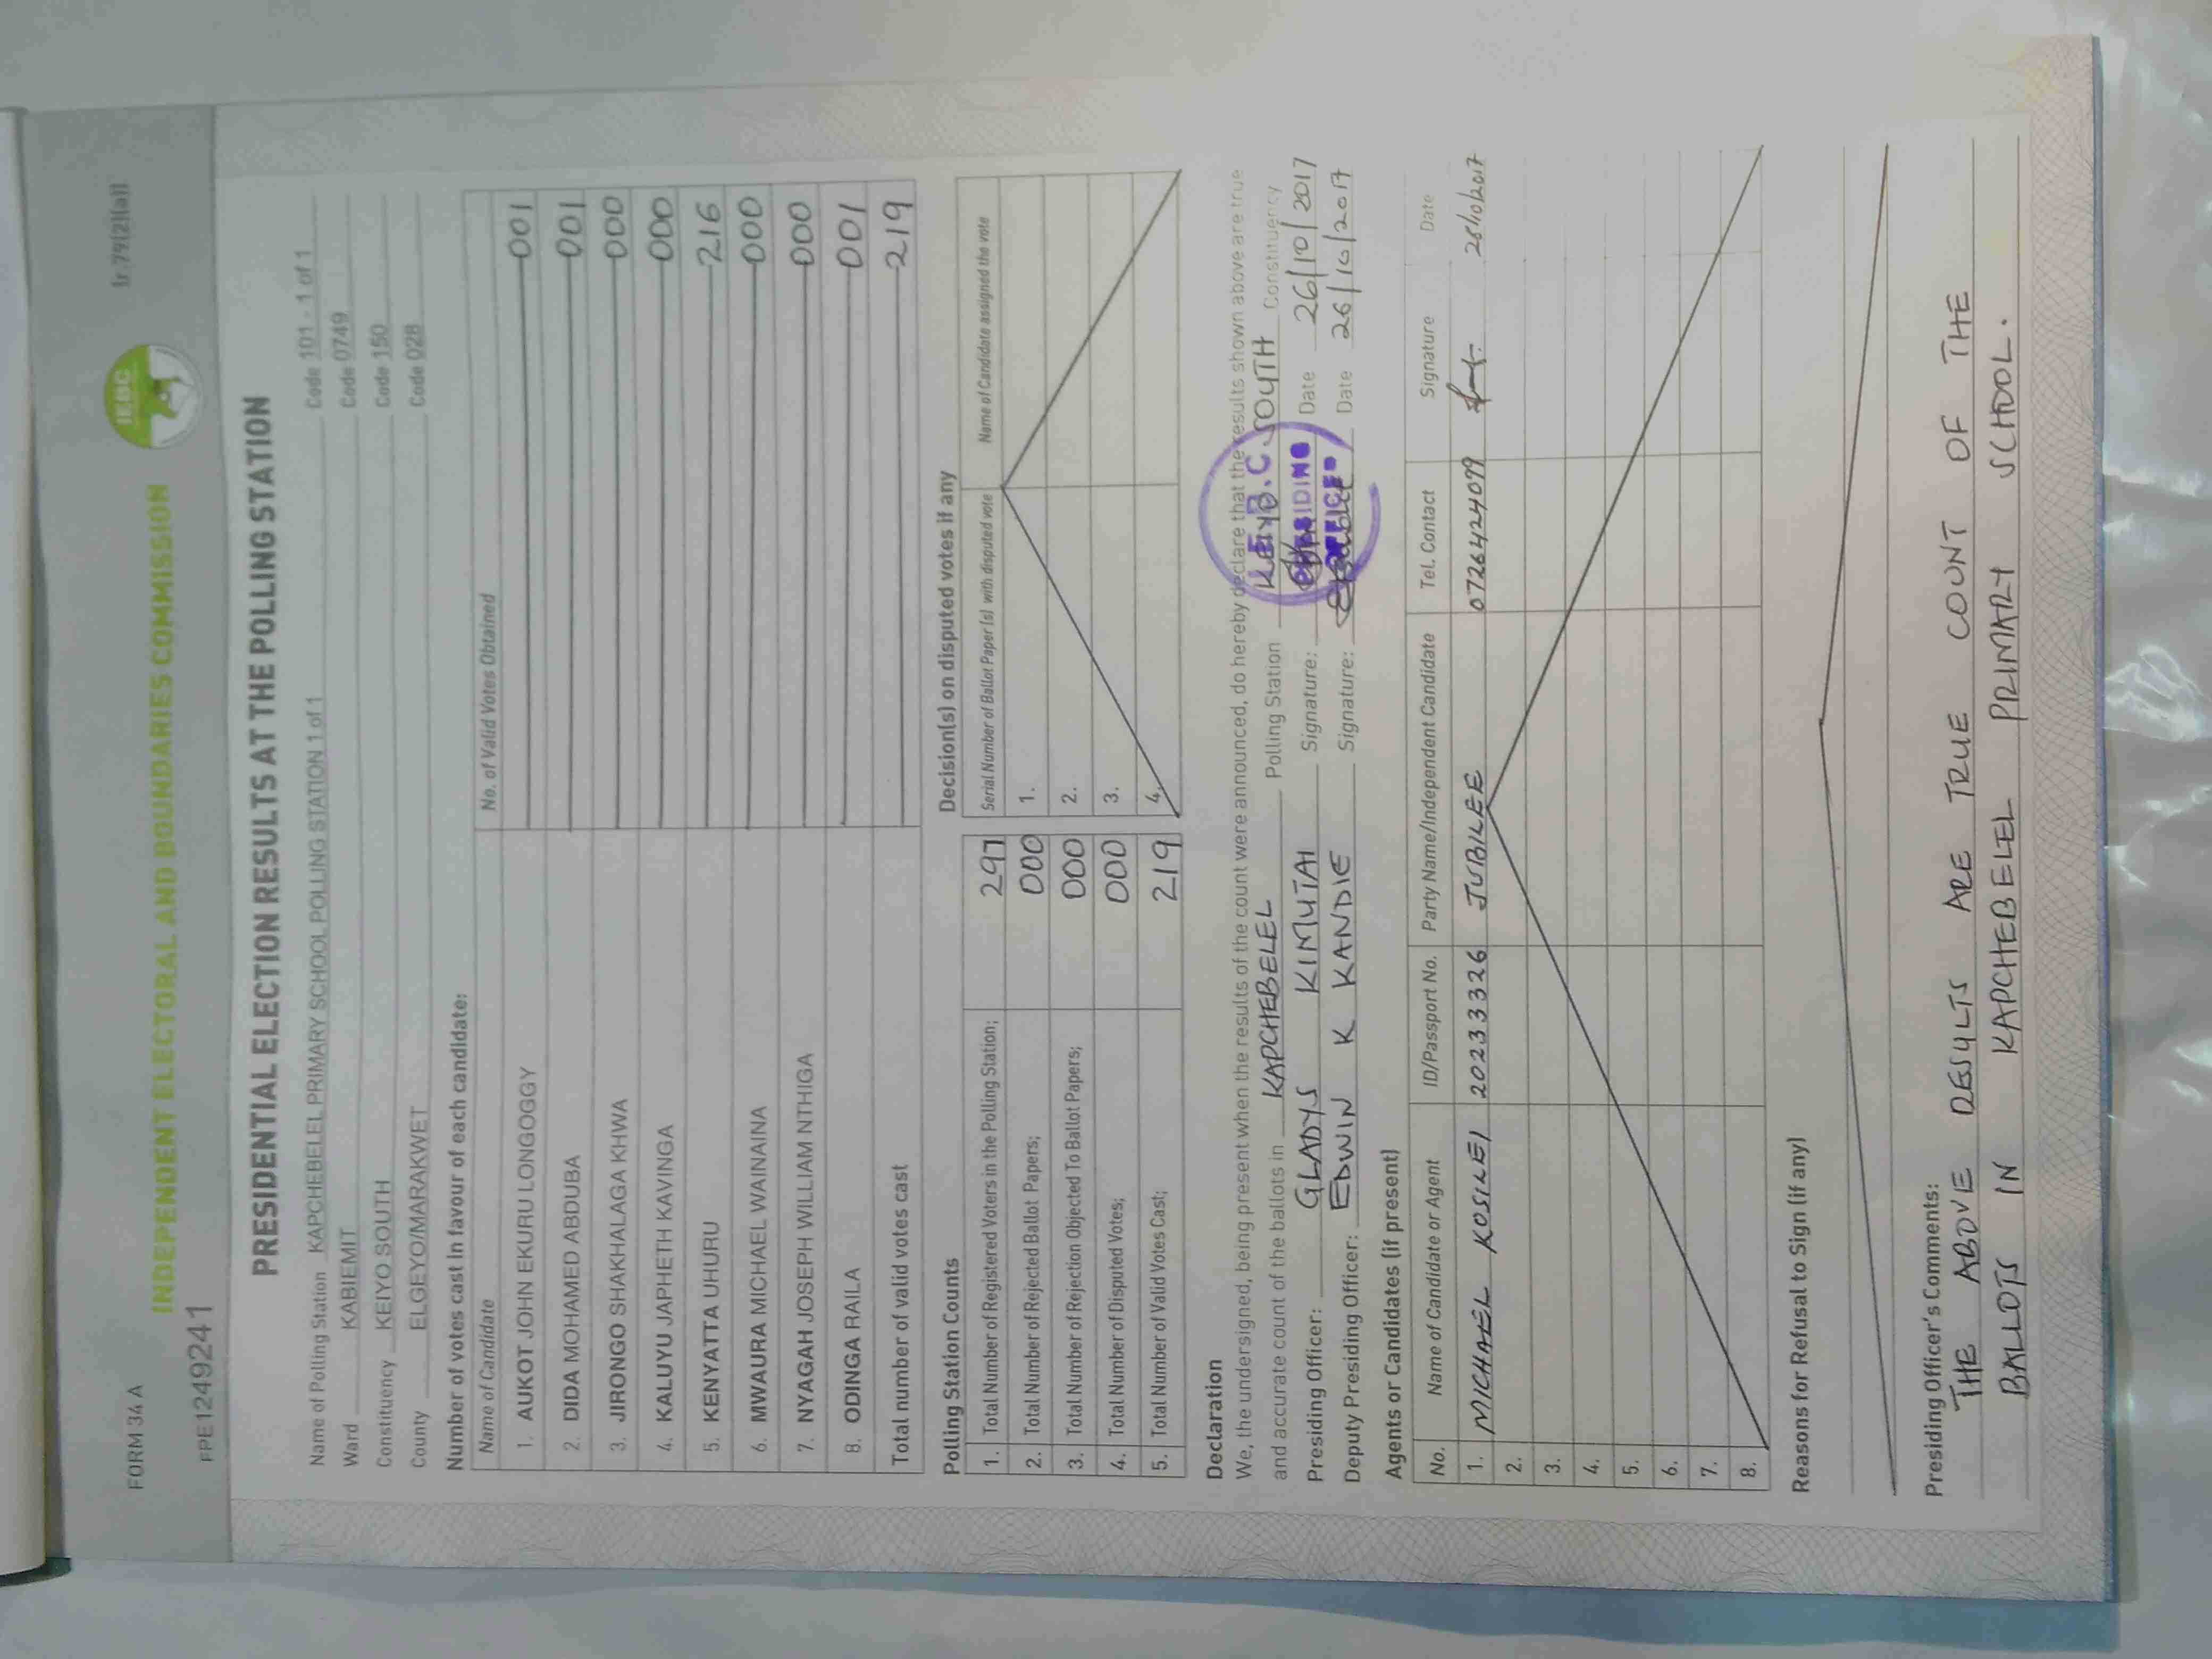 FORM 34 A
Ir 79(2)(a)
IEBC
INDEPENDENT ELECTORAL AND BOUNDARIES COMMISSION
FPE1249241
PRESIDENTIAL ELECTION RESULTS AT THE POLLING STATION
Name of Polling Station KAPCHEBELEL PRIMARY SCHOOL POLLING STATION 1 of 1 Code 101 - 1 of 1
Ward KABIEMIT Code 0749
Constituency KEIYO SOUTH Code 150
County ELGEYO/MARAKWET Code 028
Number of votes cast in favour of each candidate:
Name of Candidate No. of Valid Votes Obtained
1. AUKOT JOHN EKURU LONGOGGY 001
2. DIDA MOHAMED ABDUBA 001
3. JIRONGO SHAKHALAGA KHWA 000
4. KALUYU JAPHETH KAVINGA 000
5. KENYATTA UHURU 216
6. MWAURA MICHAEL WAINAINA 000
7. NYAGAH JOSEPH WILLIAM NTHIGA 000
8. ODINGA RAILA 001
Total number of valid votes cast 219
Polling Station Counts
1. Total Number of Registered Voters in the Polling Station; 297
2. Total Number of Rejected Ballot Papers; 000
3. Total Number of Rejection Objected To Ballot Papers; 000
4. Total Number of Disputed Votes; 000
5. Total Number of Valid Votes Cast; 219
Decision(s) on disputed votes if any
Serial Number of Ballot Paper (s) with disputed vote Name of Candidate assigned the vote
1.
2.
3.
4.
Declaration
We, the undersigned, being present when the results of the count were announced, do hereby declare that the results shown above are true
and accurate count of the ballots in KAPCHEBELEL Polling Station KEIYO SOUTH Constituency
Presiding Officer: GLADYS KIMUTAI Signature: Date 26/10/2017
Deputy Presiding Officer: EDWIN K KANDIE Signature: Date 26/10/2017
PRESIDING
OFFICER
Agents or Candidates (if present)
No. Name of Candidate or Agent ID/Passport No. Party Name/Independent Candidate Tel. Contact Signature Date
1. MICHAEL KOSKEI 20233326 JUBILEE 0726424099 26/10/2017
2.
3.
4.
5.
6.
7.
8.
Reasons for Refusal to Sign (if any)
Presiding Officer's Comments:
THE ABOVE RESULTS ARE TRUE COUNT OF THE
BALLOTS IN KAPCHEBELEL PRIMARY SCHOOL.